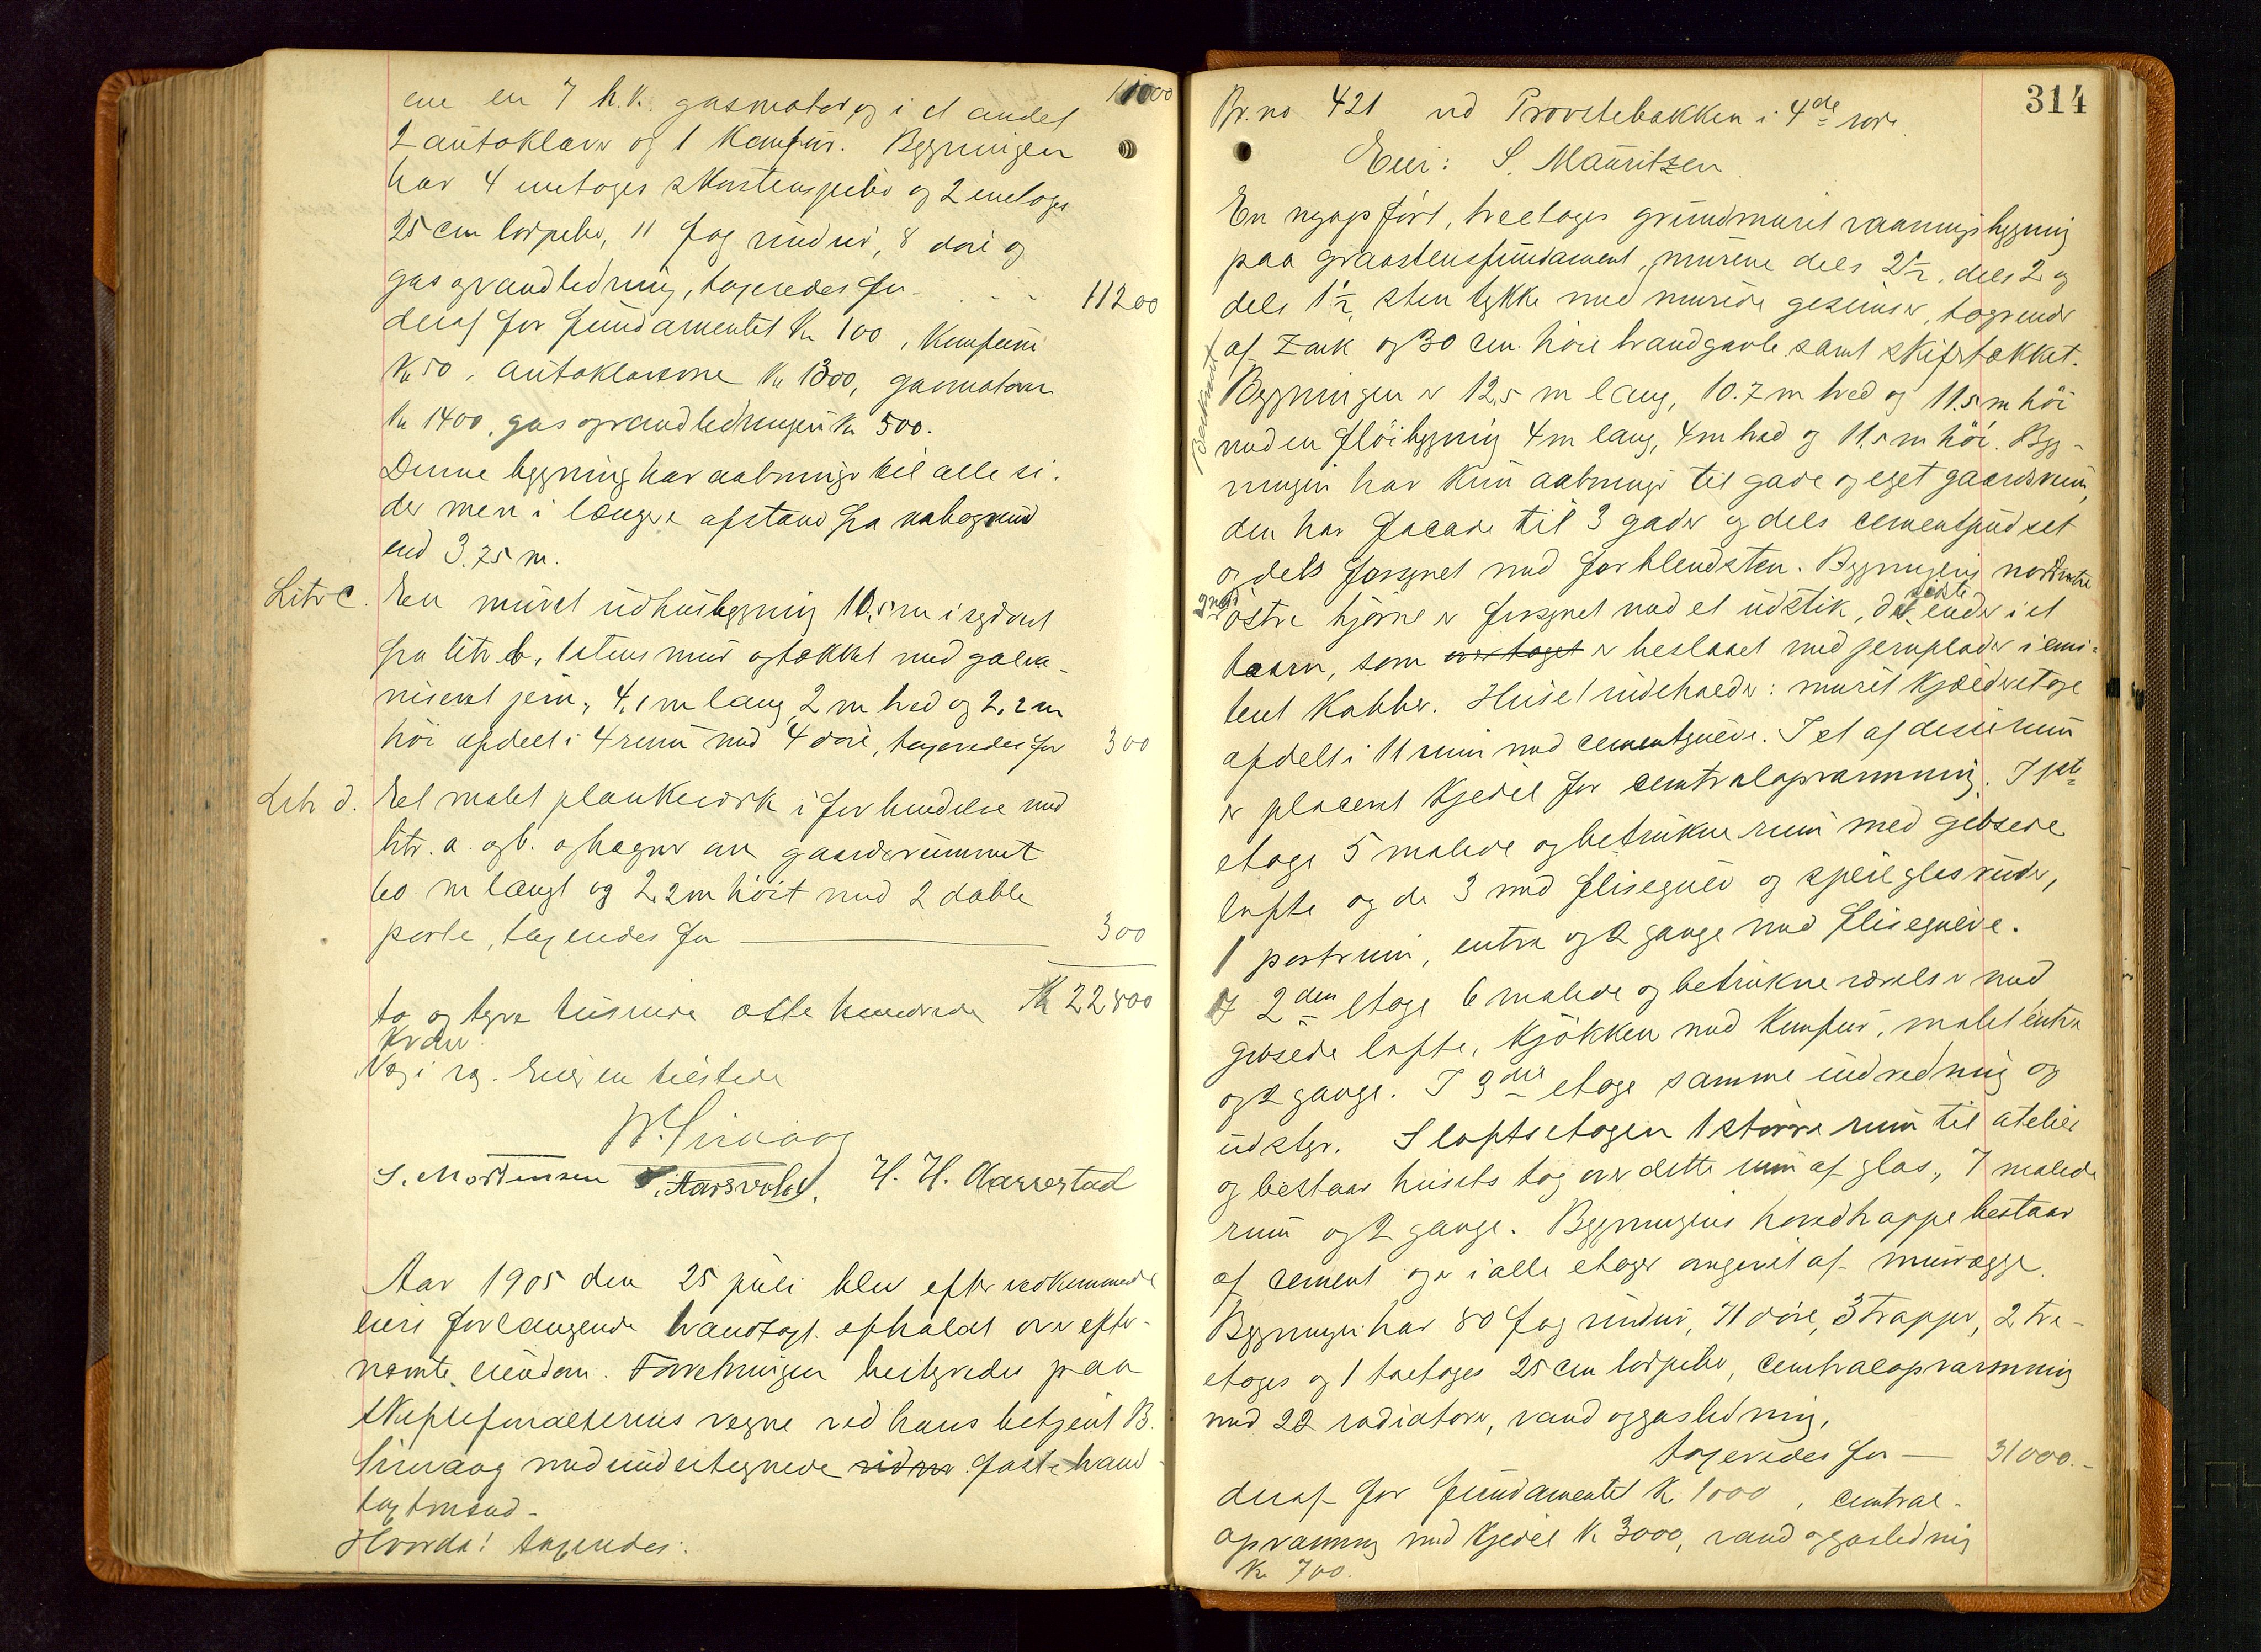 ene en 7 h.k. gasmotor og i et andet 11000
2 autoklaver og 1 Komfur. Bygningen
har 4 enetages skorstenspiber og 2 enetages
25 cm lodpiber, 11 fag vinduer, 8 döre og
gas og vandledning, taxeredes for 11200
deraf for fundamentet Kr 100, Komfuret
Kr 50, autoklaverne Kr 1300, gasmotoren
Kr 1400, gas og vandledningen Kr 500.
Denne bygning har aabninger til alle si-
der men i længere afstand fra nabogrund
end 3.75 m.
Litr c. En muret udhusbygning 10,5 m i sydvest
fra litr b, 1 stens mur og tækket med galva-
niseret jern, 4,1 m lang 2 m bred og 2,2 m
höi afdelt i 4 rum med 4 döre, taxeredes for 300
Litr d. Et malet plankeværk i forbindelse med
litr. a. og b. ophegner en gaardsrummet
60 m langt og 2,2 m höit med 2 doble
porte, taxeredes for 300
to og tyve tusinde otte hundrede Kr 22800
Kroner
Veg i og. Eieren tilstede
B. Sirevaag
S. Mortensen T. Aarsvold. H. H. Aarrestad
Aar 1905 den 25 juli blev efter vedkommende
eiers forlangende brandtaxt afholdt over efter-
nævnte eiendom. Forretningen bestyredes paa
Skifteforvalterens vegne ved hans betjent B.
Sirevaag med undertegnede faste brand-
taxtmænd.
Hvorda! taxeredes:
314
Br. no 421 ved Provstebakken i 4de rode.
Eier: S. Mauritzen
En nyopfört, treetages grundmuret vaaningsbygning
paa graastensfundament, murene dels 2½, dels 2 og
dels 1½ sten tykke med murede gesimser, tagrender
af Zink og 30 cm. höie brandgavle samt skifertækket.
Bygningen er 12,5 m lang, 10.7 m bred og 11.5 m höi
med en flöibygning 4 m lang, 4 m bred og 11.5 m höi. Byg-
ningen har kun aabninger til gade og eget gaardsrum,
den har facade til 3 gader og dels cementpudset
og dels forsynet med forblendsten. Bygningens nordvestre
og östre hjörne er forsynet med et udstik, det sidste ender i et
taarn, som over taget er beslaaet med jernplader i emi-
teret Kobber. Huset indeholder: muret kjælderetage
afdelt i 11 rum med cementgulve. I et af disse rum
er placeret kjedel for centralopvarmning. I 1ste
etage 5 malede og betrukne rum med gibsede
lofte og de 3 med flisegulv og speilglasruder,
1 portrum, entre og 2 gange med flisegulve.
I 2den etage 6 malede og betrukne værelser med
gibsede lofte, kjökken med Komfur, malet entre
og 2 gange. I 3die etage samme indredning og
udstyr. I loftsetagen 1 större rum til atelier
og bestaar husets tag over dette rum af glas, 7 malede
rum og 2 gange. Bygningens hovedtrappe bestaar
af cement og er i alle etager omgivet af murvægge.
Bygningen har 80 fag vinduer, 71 döre, 3 trapper, 2 tre-
etages og 1 toetages 25 cm lodpiber, centralopvarmning
med 22 radiatorer, vand og gasledning,
taxeredes for — 31000.-
deraf for fundamentet Kr 1000, central-
opvarming med kjedel Kr 3000, vand og gasledning
Kr 700.